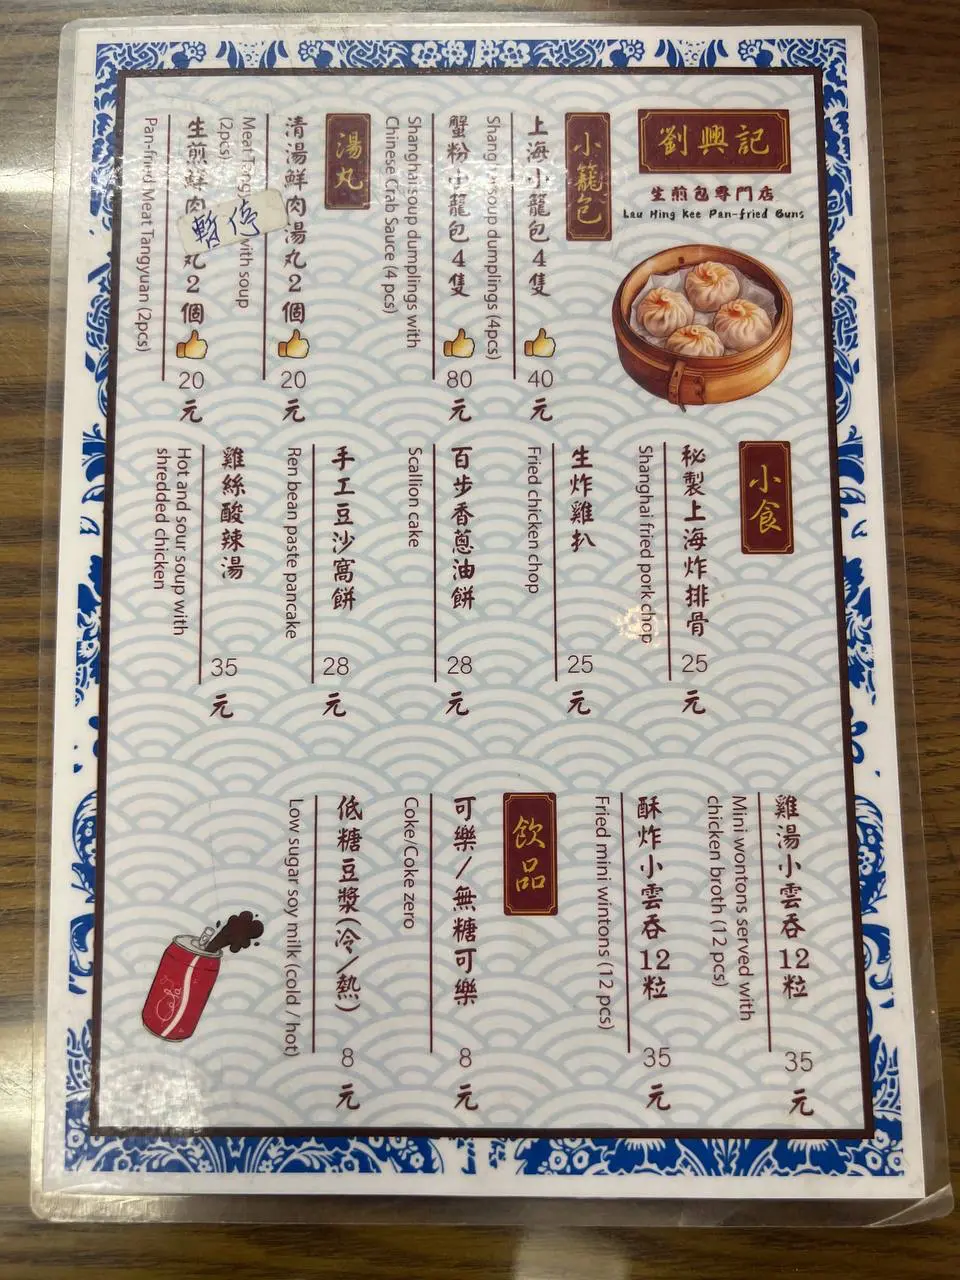 劉興記
生煎包專門店
Lau Hing Kee Pan-fried Buns
小籠包
上海小籠包4隻
Shanghai soup dumplings (4pcs)
40
元
蟹粉小籠包4隻
Shanghai soup dumplings with
Chinese Crab Sauce (4 pcs)
80
元
湯丸
清湯鮮肉湯丸2個
Meat Tangyuan with soup
(2pcs)
20
元
生煎鮮肉 丸2個
暫停
Pan-fried Meat Tangyuan (2pcs)
20
元
小食
秘製上海炸排骨
Shanghai fried pork chop
25
元
生炸雞扒
Fried chicken chop
25
元
百步香蔥油餅
Scallion cake
28
元
手工豆沙窩餅
Ren bean paste pancake
28
元
雞絲酸辣湯
Hot and sour soup with
shredded chicken
35
元
雞湯小雲吞12粒
Mini wontons served with
chicken broth (12 pcs)
35
元
酥炸小雲吞12粒
Fried mini wintons (12 pcs)
35
元
飲品
可樂/無糖可樂
Coke/Coke zero
8
元
低糖豆漿(冷/熱)
Low sugar soy milk (cold / hot)
8
元